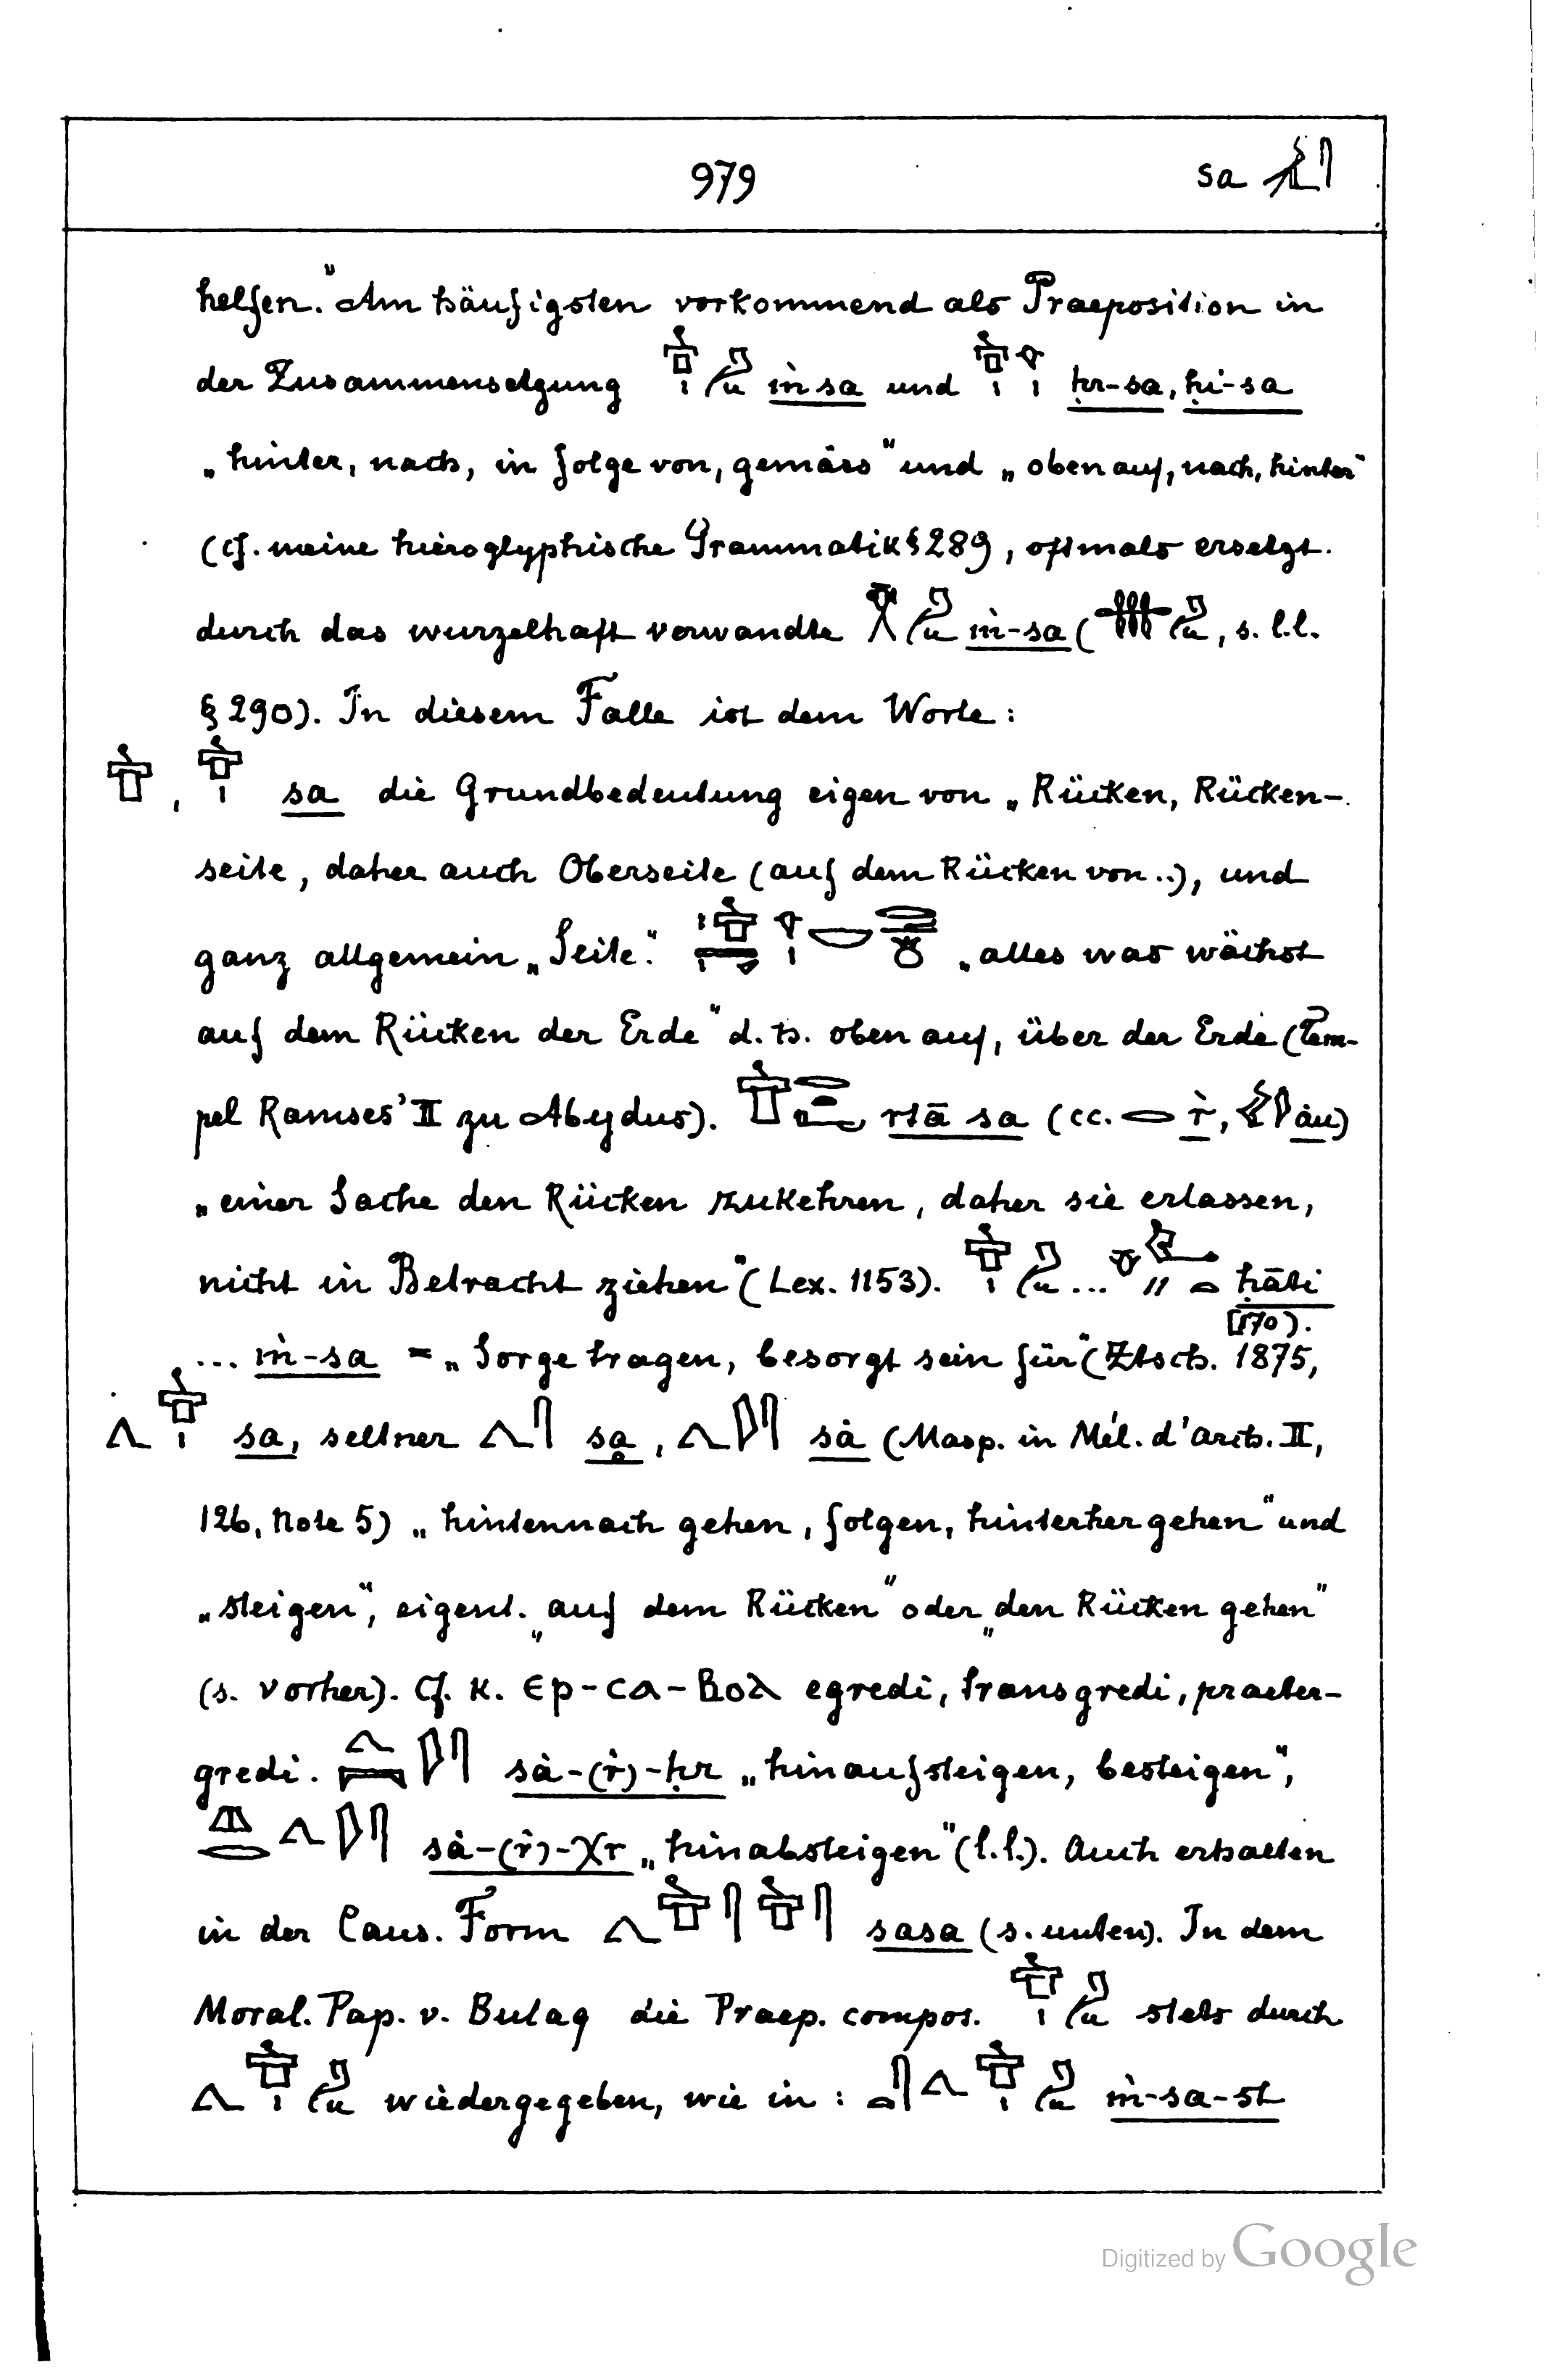 979 sa
helfen." Am häufigsten vorkommend als Praeposition in
der Zusammensetzung ṁ sa und ḥr-sa, ḥi-sa
„hinter, nach, in folge von, gemäss" und „oben auf, nach, hinter"
(cf. meine hieroglyphische Grammatik § 289, oftmals ersetzt
durch das wurzelhaft verwandte ṁ-sa ( , s. l.l.
§ 290). In diesem Falle ist dem Worte:
, sa die Grundbedeutung eigen von „Rücken, Rücken-
seite, daher auch Oberseite (auf dem Rücken von..), und
ganz allgemein „Seite". „alles was wächst
auf dem Rücken der Erde" d. h. oben auf, über der Erde (Tem-
pel Ramses' II zu Abydus). rtā sa (cc. ṙ, ȧu)
„einer Sache den Rücken zukehren, daher sie erlassen,
nicht in Betracht ziehen" (Lex. 1153). ... ḥāti
... ṁ-sa = „Sorge tragen, besorgt sein für" (Ztsch. 1875, [170).
sa, seltner sạ, sȧ (Masp. in Mél. d'arch. II,
126, Note 5) „hintennach gehen, folgen, hinterher gehen" und
„steigen", eigent. „auf dem Rücken" oder „den Rücken gehen"
(s. vorher). Cf. K. ⲉⲣ-ⲥⲁ-ⲃⲟⲗ egredi, transgredi, praeter-
gredi. sȧ-(ṙ)-ḥr „hinaufsteigen, besteigen",
sȧ-(ṙ)-χr „hinabsteigen" (l.l.). Auch erhalten
in der Caus. Form sasa (s. unten). In dem
Moral. Pap. v. Bulaq die Praep. compos. stets durch
wiedergegeben, wie in : ṁ-sa-st
Digitized by Google